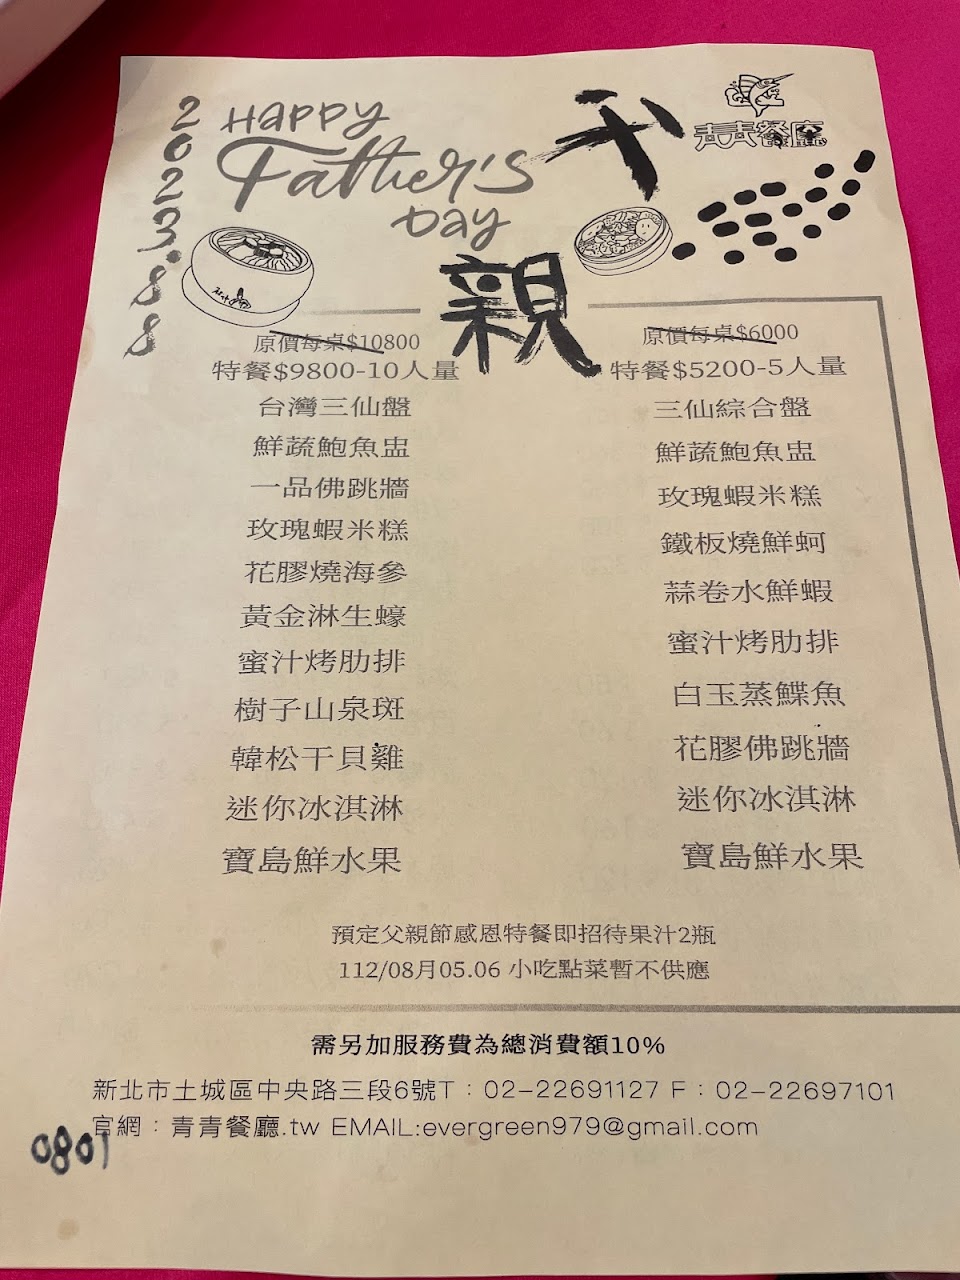 2023.88
HAPPY
Father's
DAY
青青餐廳
親
原價每桌$10800
特餐$9800-10人量
台灣三仙盤
鮮蔬鮑魚盅
一品佛跳牆
玫瑰蝦米糕
花膠燒海參
黃金淋生蠔
蜜汁烤肋排
樹子山泉斑
韓松干貝雞
迷你冰淇淋
寶島鮮水果
原價每桌$6000
特餐$5200-5人量
三仙綜合盤
鮮蔬鮑魚盅
玫瑰蝦米糕
鐵板燒鮮蚵
蒜卷水鮮蝦
蜜汁烤肋排
白玉蒸鰈魚
花膠佛跳牆
迷你冰淇淋
寶島鮮水果
預定父親節感恩特餐即招待果汁2瓶
112/08月05.06 小吃點菜暫不供應
需另加服務費為總消費額10%
新北市土城區中央路三段6號T：02-22691127 F：02-22697101
官網：青青餐廳.tw EMAIL:evergreen979@gmail.com
0801